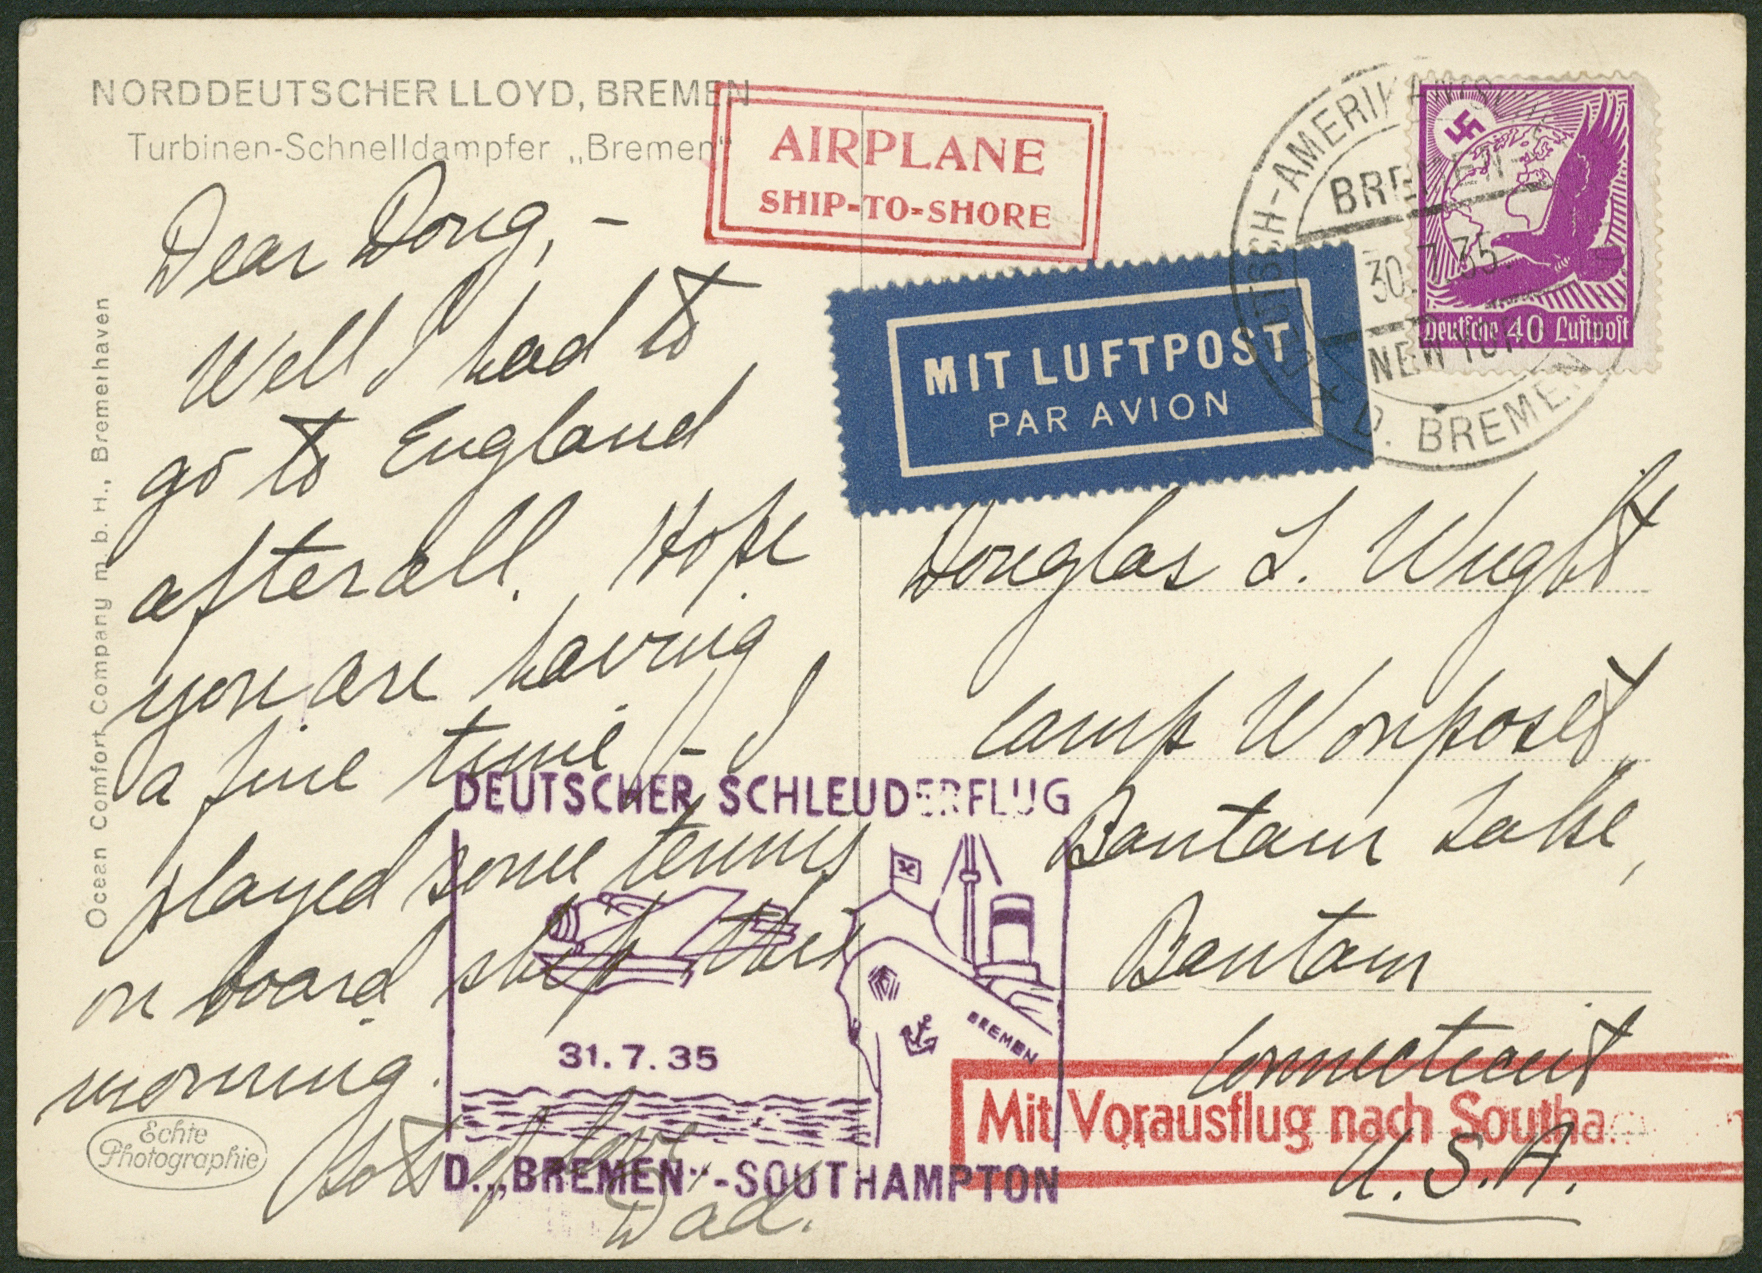 NORDDEUTSCHER LLOYD, BREMEN
Turbinen-Schnelldampfer „Bremen"
AIRPLANE
SHIP-TO-SHORE
MIT LUFTPOST
PAR AVION
DEUTSCH-AMERIKANISCHE
BREMEN-
30.7.35.
NEW YORK
D. BREMEN
Deutsche 40 Luftpost
Dear Doug, -
Well I had to
go to England
after all. Hope
you are having
a fine time - I
played some tennis
on board ship this
morning.
Lots of love
Dad.
Douglas L. Wright
Camp Wonposet
Bantam Lake,
Bantam
Connecticut
U.S.A.
DEUTSCHER SCHLEUDERFLUG
BREMEN
31.7.35
D. „BREMEN"-SOUTHAMPTON
Mit Vorausflug nach Southa
Ocean Comfort Company m. b. H., Bremerhaven
Echte
Photographie